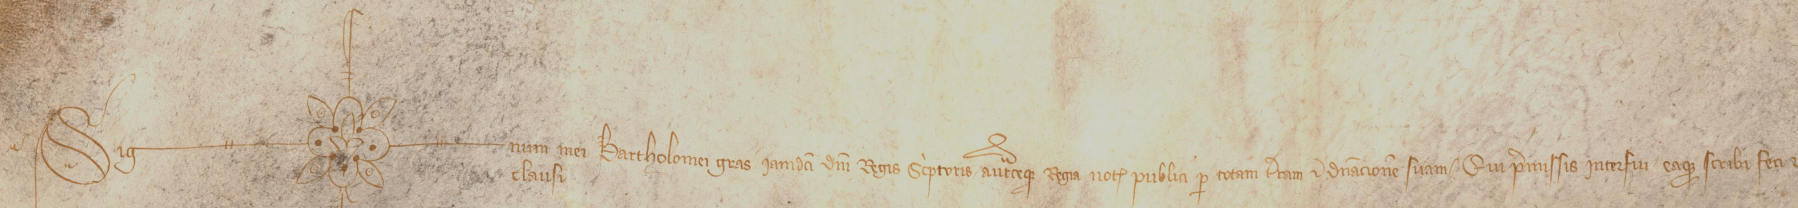 Signum mei Bartholomei gras iamdci dni Regis Scptoris aucteqz Regia not publici p totam tram z dnacione suam / Qui pmissis interfui eaqz scribi feci z
clausi